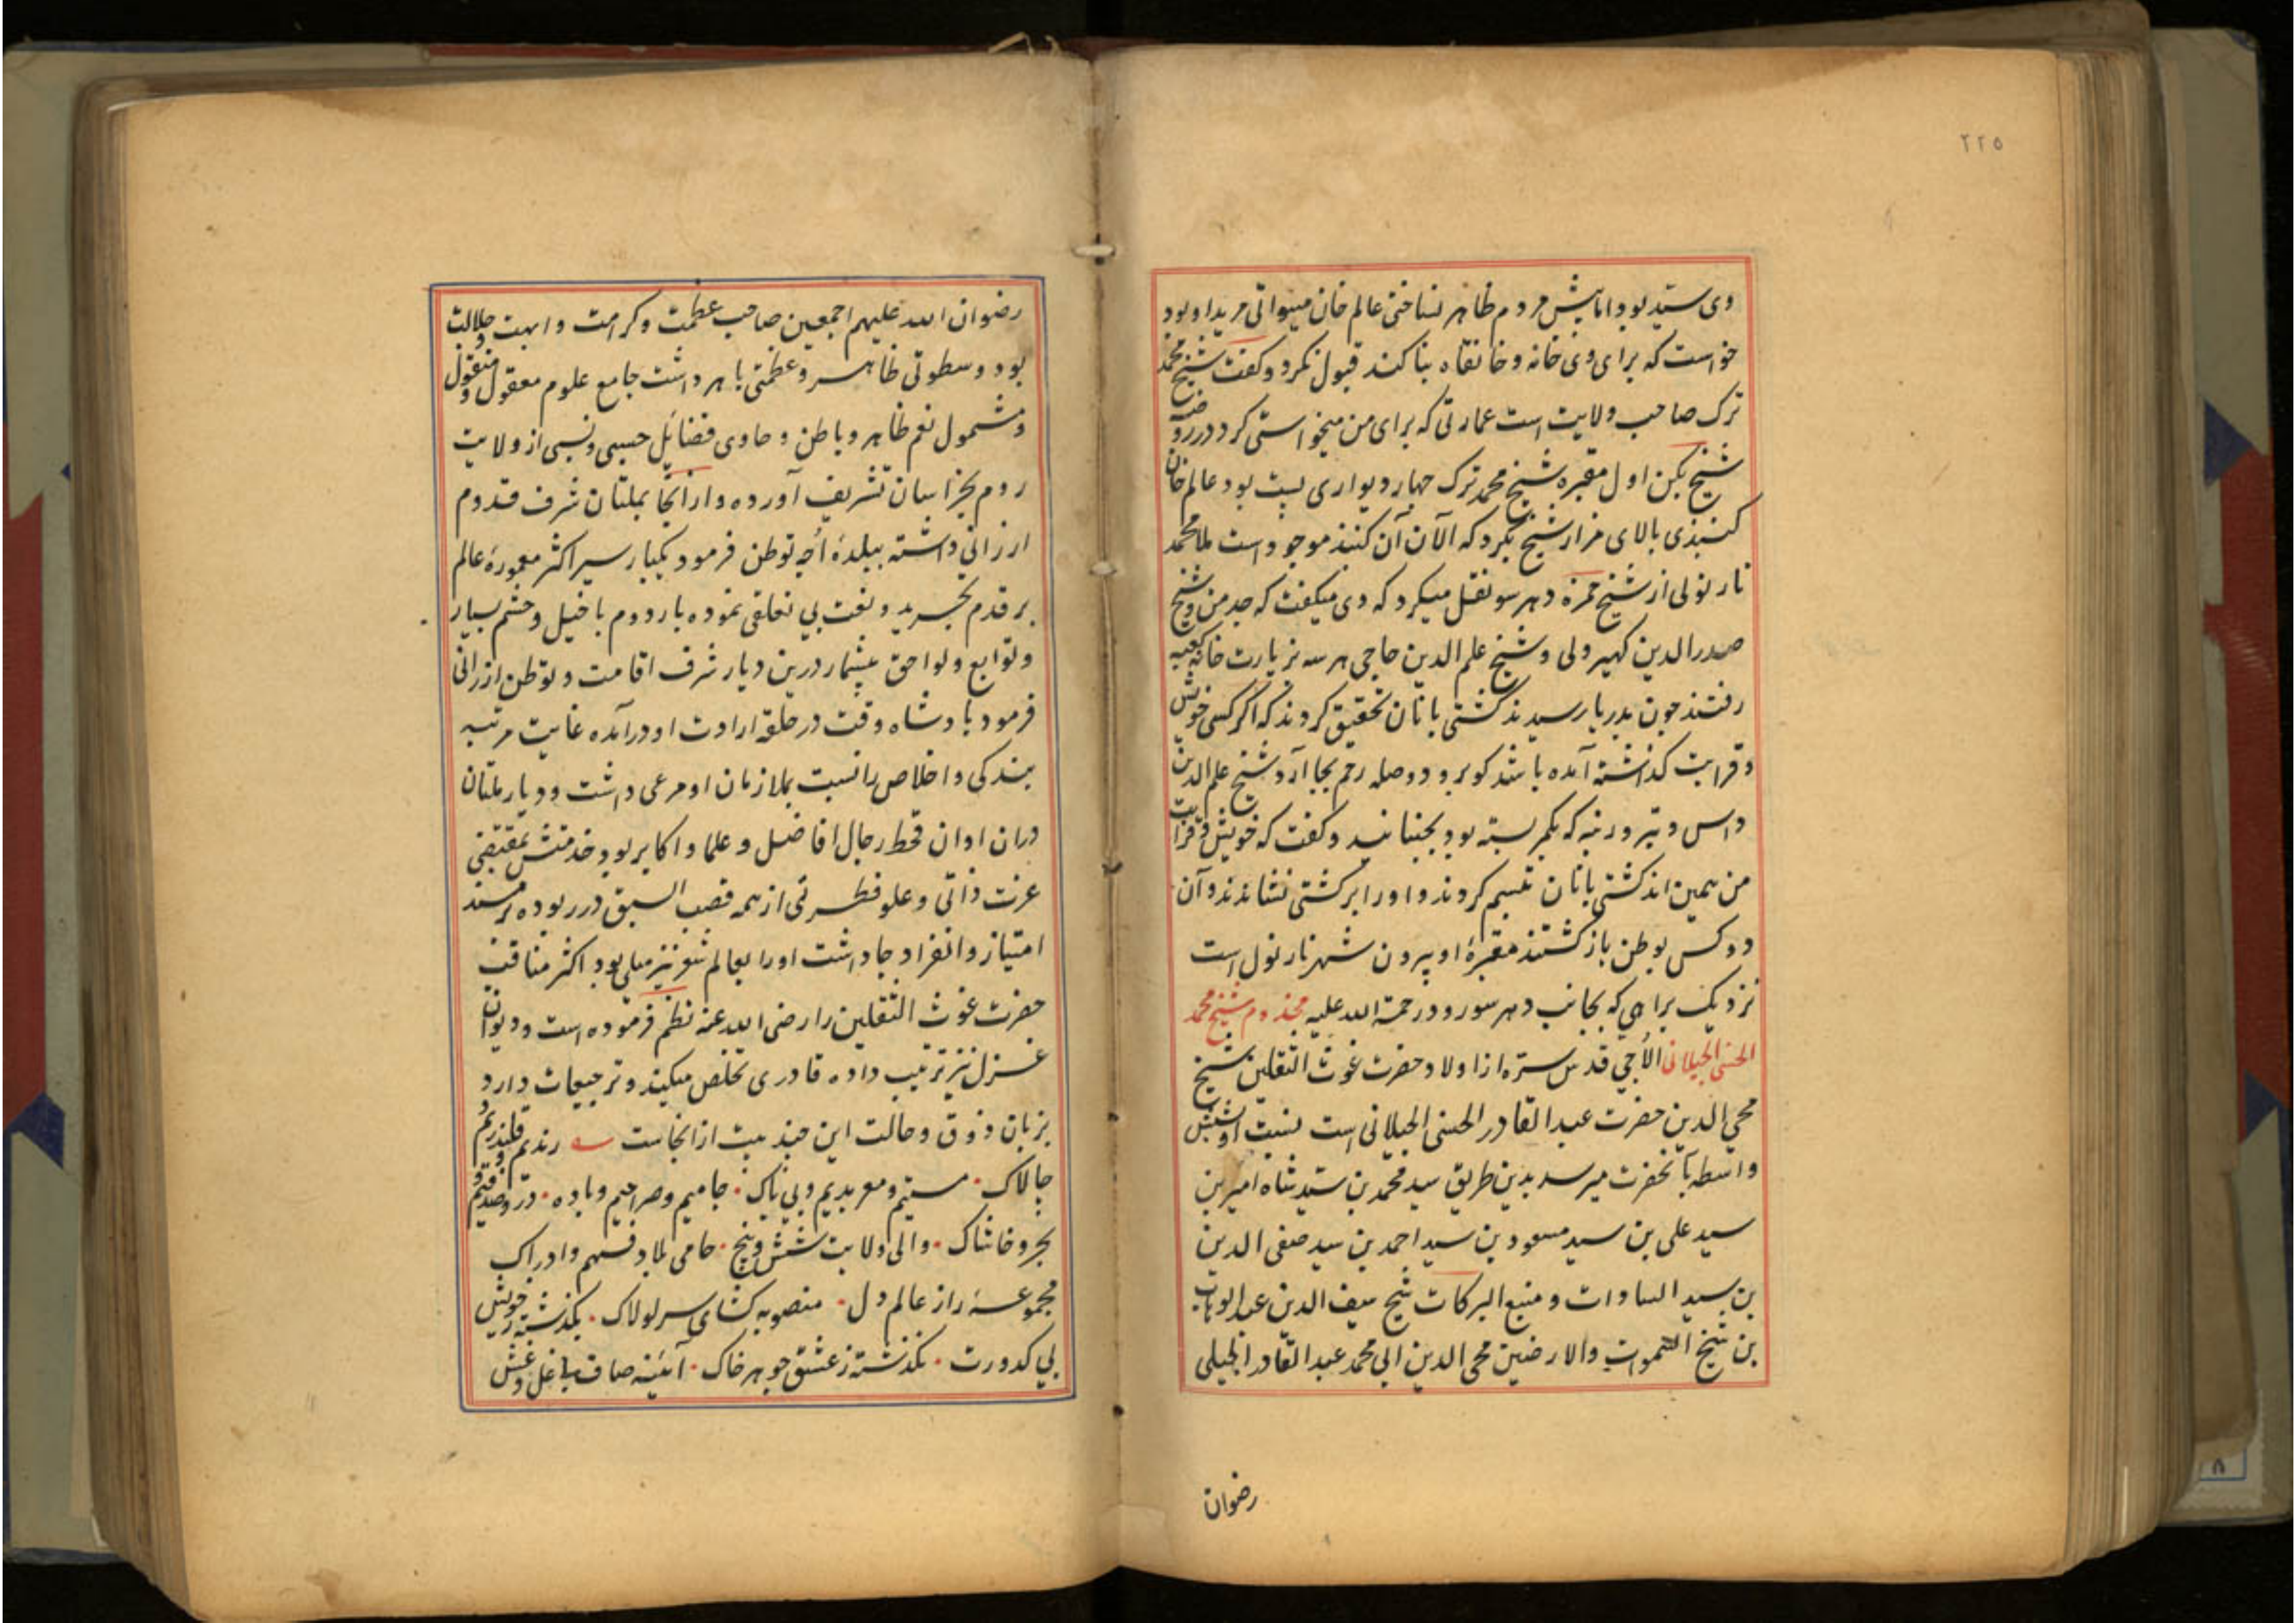 ٢٢٥
وی سید بود اما پیش مردم ظاهر نساختی عالم خان میواتی مرید او بود
خواست که برای وی خانه و خانقاه بنا کند قبول نکرد و کفت شیخ محمد
ترک صاحب ولایت است عمارتی که برای من میخواستی کرد در روضه
شیخ بکن اول مقبره شیخ محمد ترک چهار دیواری پست بود عالم خان
کنبدی بالای مزار شیخ بکرد که الآن آن کنبد موجود است ملا محمد
نارنولی از شیخ حمزه دهرسو نقل میکرد که وی میکفت که جد من و شیخ
صدر الدین کهیر ولی و شیخ علم الدین حاجی هر سه بزیارت خانه کعبه
رفتند چون بدریا رسیدند کشتی بانان تحقیق کردند که اکر کسی خویش
و قرابت کذاشته آمده باشد کو برو و صله رحم بجا آرد شیخ علم الدین
داس و تبر و رنبه که بکمر بسته بود بجنبانید و کفت که خویش و قرابت
من همین اند کشتی بانان تبسم کردند و او را بر کشتی نشاندند و آن
دو کس بوطن باز کشتند مقبرۀ او بیرون شهر نارنول است
نزدیک براهی که بجانب دهرسو رود رحمة الله علیه مخدوم شیخ محمد
الحسنی الجیلانی الأجی قدس سره از اولاد حضرت غوث الثقلین شیخ
محی الدین حضرت عبد القادر الحسنی الجیلانی است نسبت او بشش
واسطه بآنحضرت میرسد بدین طریق سید محمد بن سید شاه امیر بن
سید علی بن سید مسعود بن سید احمد بن سید صفی الدین
بن سید السادات و منبع البرکات شیخ سیف الدین عبد الوهاب
بن شیخ السموات والارضین محی الدین ابی محمد عبد القادر الجیلی
رضوان
رضوان الله علیهم اجمعین صاحب عظمت و کرامت و ابهت و جلالت
بود و سطوتی ظاهر و عظمتی باهر داشت جامع علوم معقول و منقول
و مشمول نعم ظاهر و باطن و حاوی فضائل حسبی و نسبی از ولایت
روم بخراسان تشریف آورده و از آنجا بملتان شرف قدوم
ارزانی داشته ببلدۀ اُچه توطن فرمود یکبار سیر اکثر معمورۀ عالم
بر قدم تجرید و نعت بی تعلقی نموده بار دوم با خیل و حشم بسیار
و توابع و لواحق بیشمار درین دیار شرف اقامت و توطن ارزانی
فرمود بادشاه وقت در حلقۀ ارادت او درآمده غایت مرتبه
بندکی و اخلاص را نسبت بملازمان او مرعی داشت و دیار ملتان
دران اوان قحط رجال افاضل و علما و اکابر بود خدمتش بمقتضی
عزت ذاتی و علو فطرتی از همه قصب السبق در ربوده بر مسند
امتیاز و انفراد جا داشت او را بعالم شعر نیز میلی بود اکثر مناقب
حضرت غوث الثقلین را رضی الله عنه نظم فرموده است و دیوان
غزل نیز ترتیب داده قادری تخلص میکند و ترجیعات دارد
بزبان ذوق و حالت این چند بیت از انجاست رندیم و قلندریم و
چالاک مستیم و معربدیم و بی باک جامیم و صراحیم و باده در و صدفیم و
بحر و خاشاک والی ولایت شش و پنج حامی بلاد فهم و ادراک
مجموعۀ راز عالم دل منصوبه کشای سر لولاک بکذشته ز خویش
بی کدورت بکذشته ز عشق جوهر خاک آئینه صاف با غل و غش